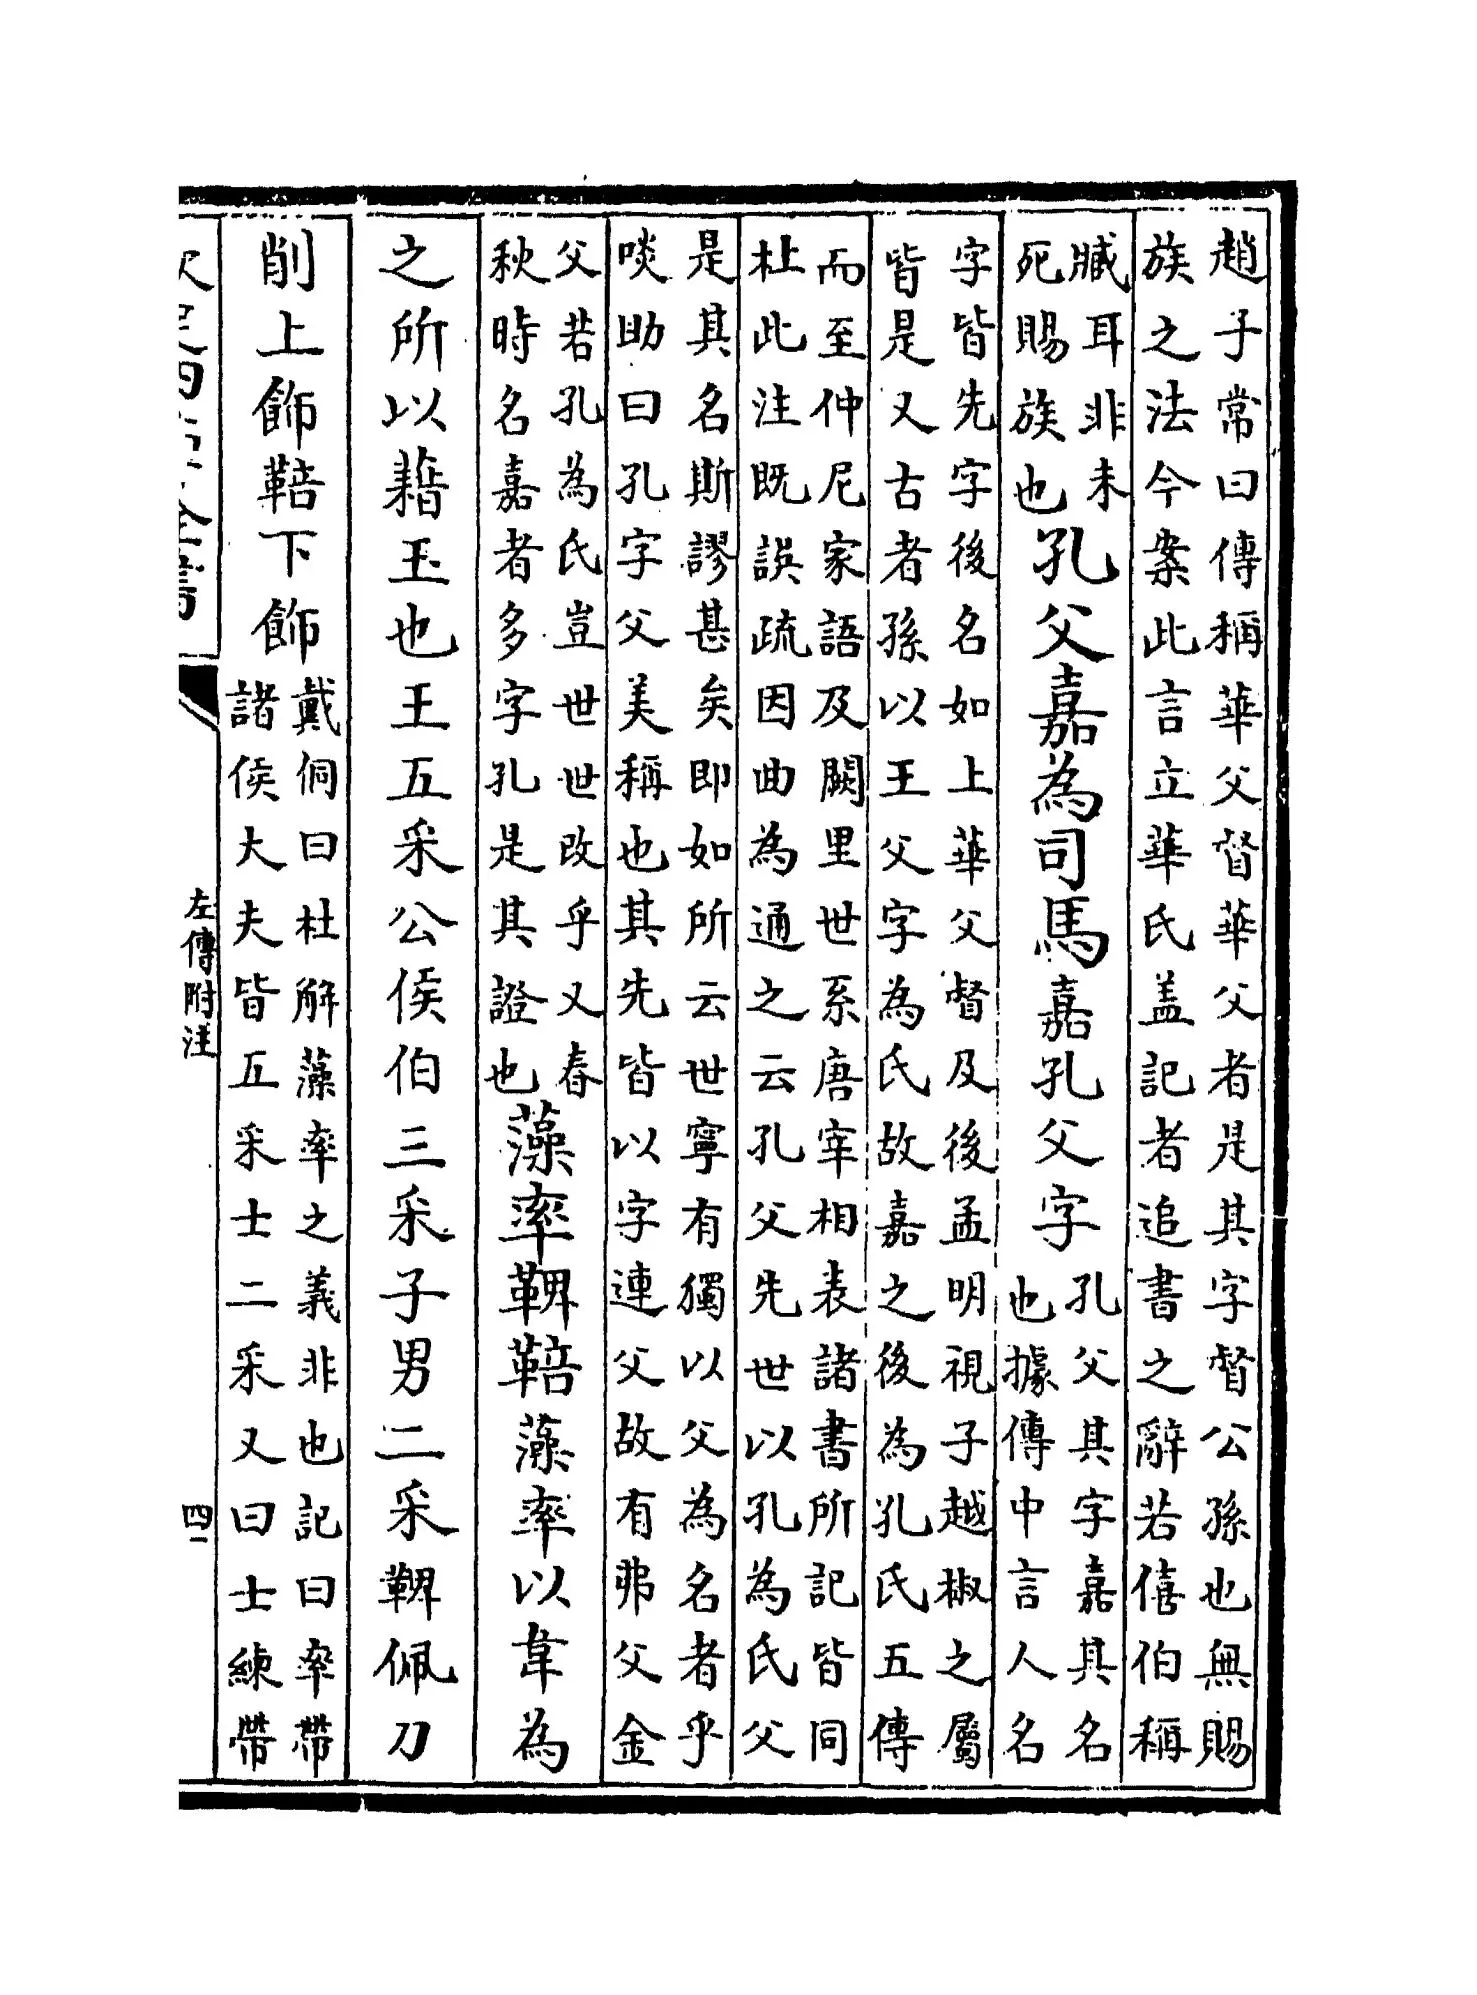 趙子常曰傳稱華父督華父者是其字督公孫也無賜
族之法今案此言立華氏盖記者追書之辭若僖伯稱
臧耳非未
死賜族也
孔父嘉為司馬嘉孔父字
孔父其字嘉其名
也據傳中言人名
字皆先字後名如上華父督及後孟明視子越椒之屬
皆是又古者孫以王父字為氏故嘉之後為孔氏五傳
而至仲尼家語及闕里世系唐宰相表諸書所記皆同
杜此注既誤疏因曲為通之云孔父先世以孔為氏父
是其名斯謬甚矣即如所云世寧有獨以父為名者乎
啖助曰孔字父美稱也其先皆以字連父故有弗父金
父若孔為氏豈世世改乎又春
秋時名嘉者多字孔是其證也
藻率鞞鞛藻率以韋為
之所以藉玉也王五采公侯伯三采子男二采鞞佩刀
削上飾鞛下飾
戴侗曰杜解藻率之義非也記曰率帶
諸侯大夫皆五采士二采又曰士練帶
欽定四庫全書
左傳附注